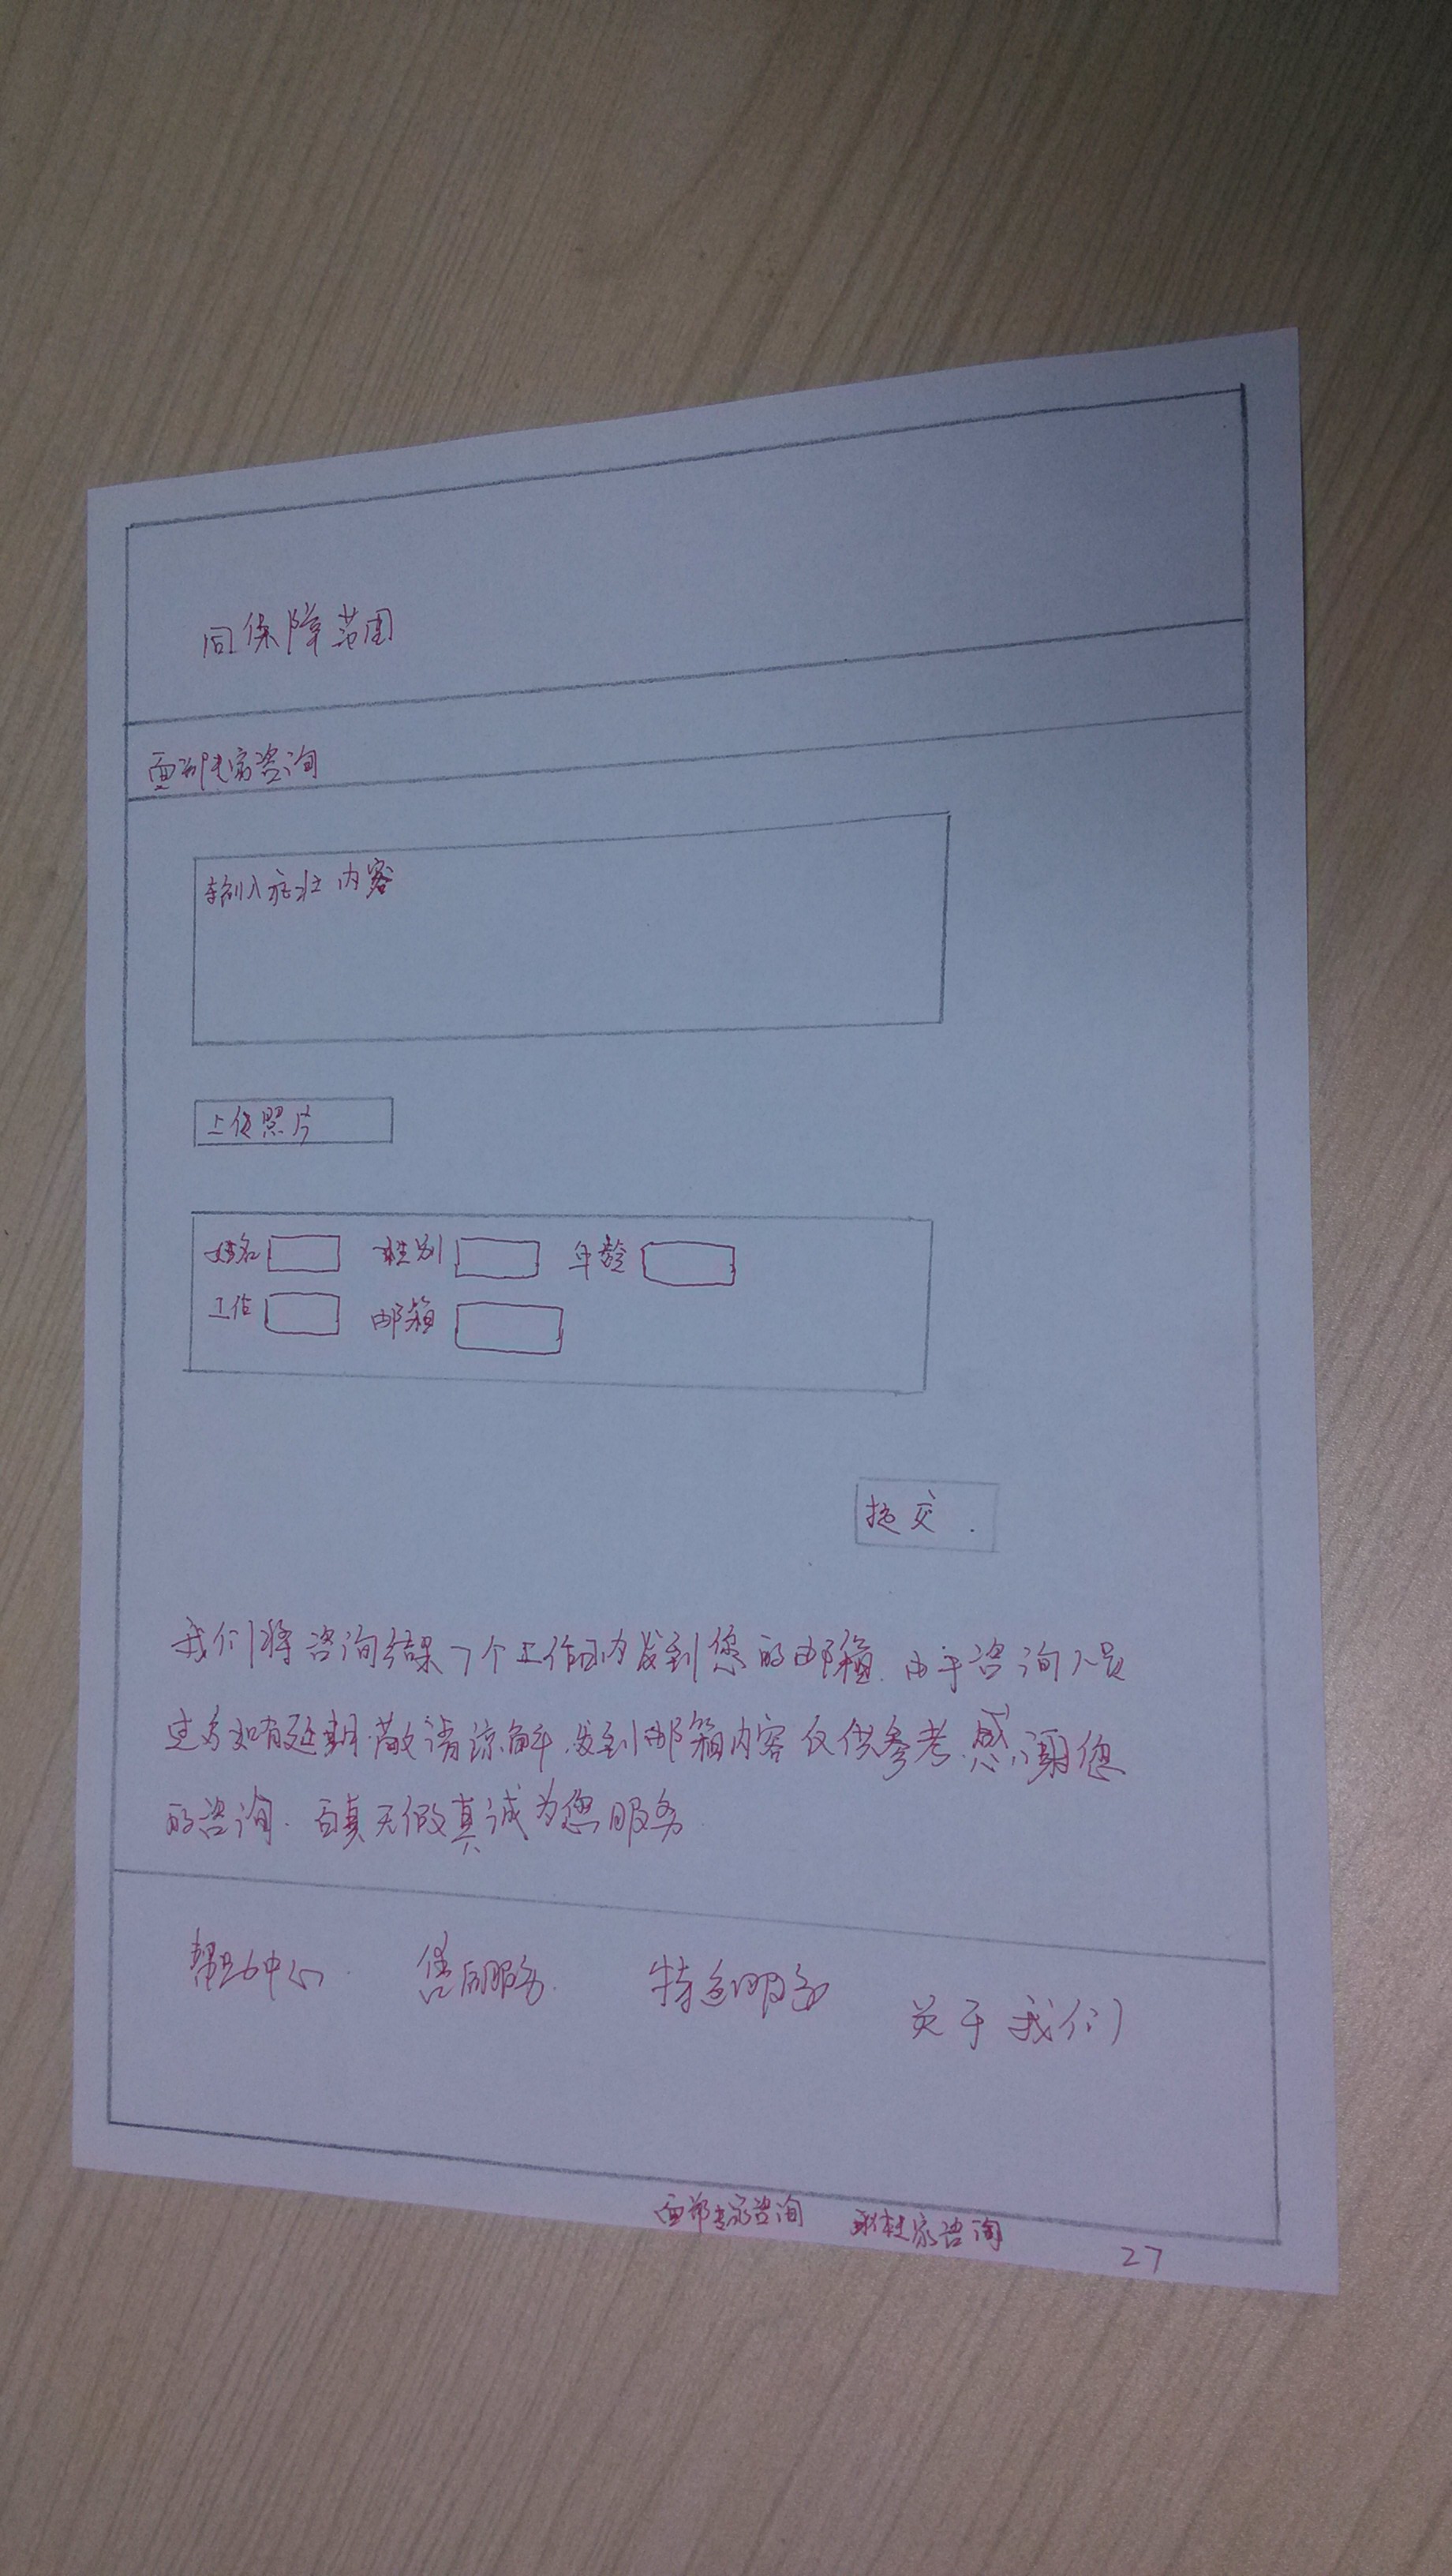 同保障范围
面部专家咨询
输入症状内容
上传照片
姓名 性别 年龄
工作 邮箱
提交.
我们将咨询结果7个工作日内发到您的邮箱.由于咨询人员
过多如有延期.敬请谅解.发到邮箱内容仅供参考.感谢您
的咨询.百真无假真诚为您服务
帮助中心. 售后服务. 特色服务 关于我们
面部专家咨询 专家咨询 27